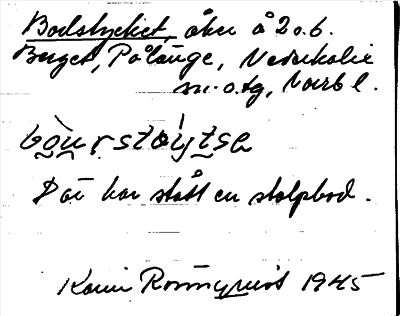 Bodstycket, åker å 2 o. 6.
Berget, Pålänge, Nederkalix
m. o. tg, Norrb l.
Där har stått en stolpbod.
Karin Rönnqvist 1945